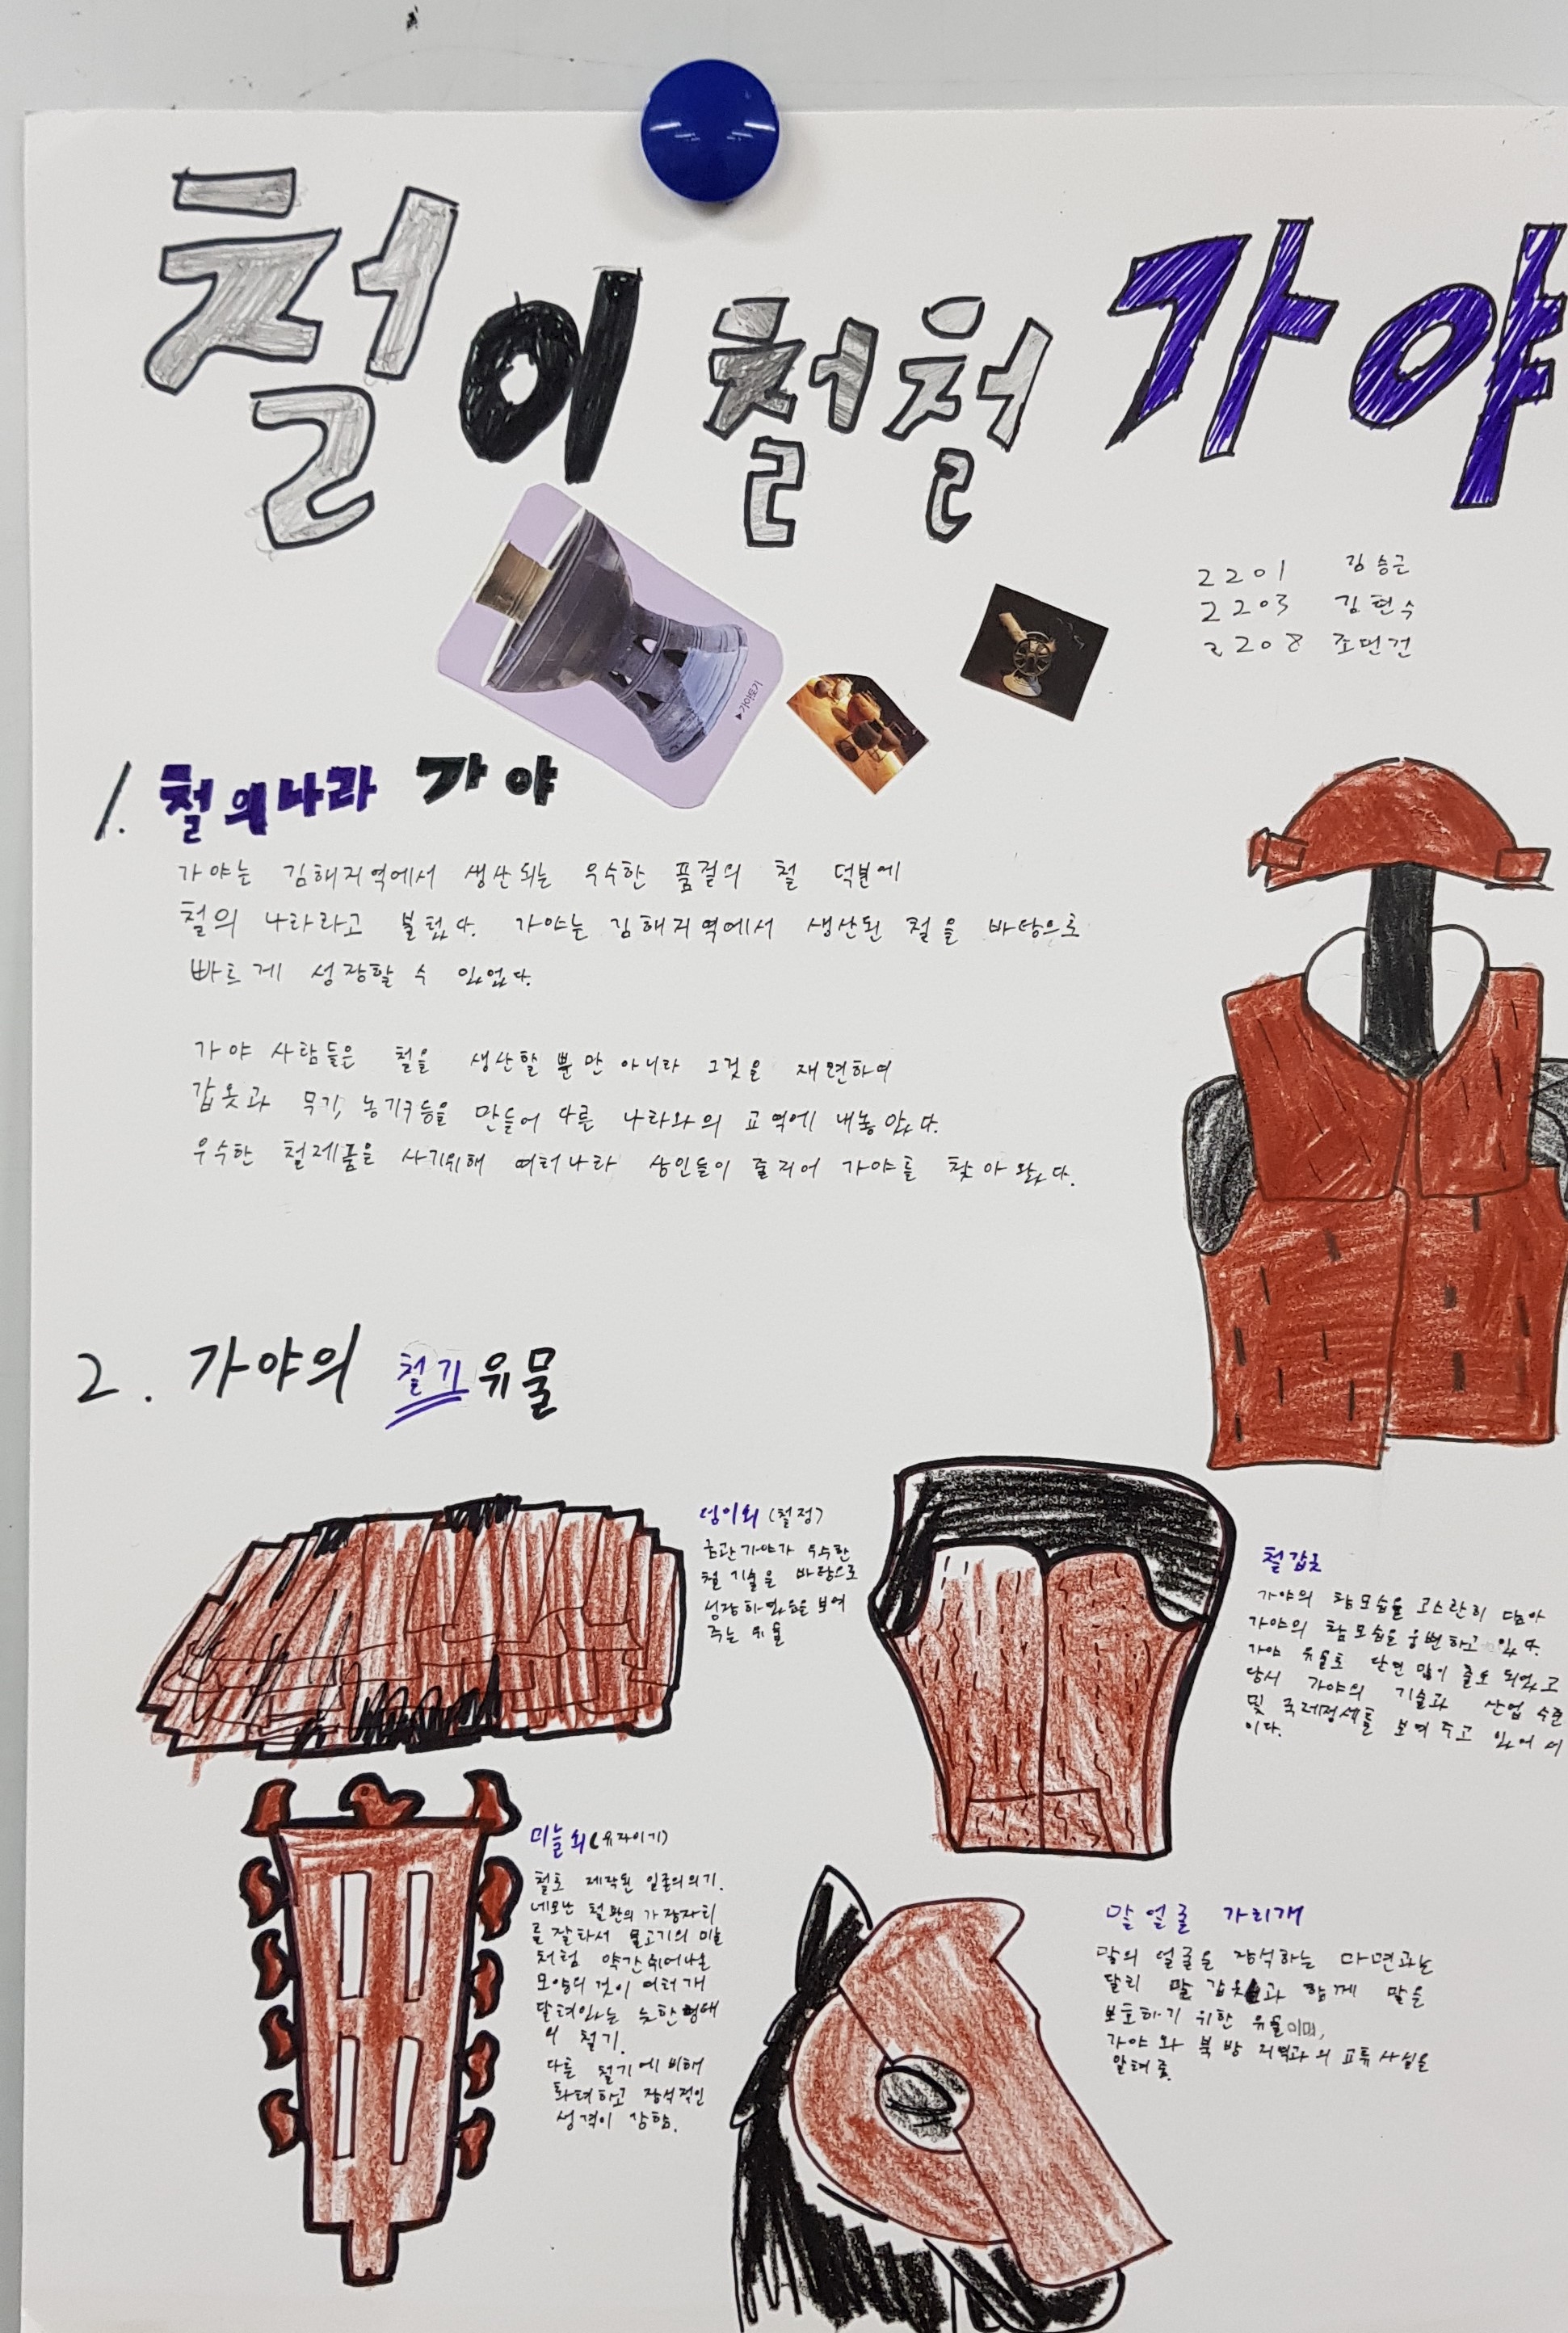 철이 철철 가야
2201 김승근
2203 김현수
2208 조민건
▲가야토기
1. 철의나라 가야
가야는 김해지역에서 생산되는 우수한 품질의 철 덕분에
철의 나라라고 불렸다. 가야는 김해지역에서 생산된 철을 바탕으로
빠르게 성장할 수 있었다.
가야 사람들은 철을 생산할 뿐만 아니라 그것을 재련하여
갑옷과 무기, 농기구등을 만들어 다른 나라와의 교역에 내놓았다.
우수한 철제품을 사기위해 여러나라 상인들이 줄지어 가야를 찾아왔다.
2. 가야의 철기유물
덩이쇠 (철정)
금관가야가 우수한
철 기술을 바탕으로
성장하였음을 보여
주는 유물
철갑옷
가야의 참모습을 고스란히 담아
가야의 참모습을 웅변하고 있다.
가야 유물로 단연 많이 출토 되었고
당시 가야의 기술과 산업 수준
및 국제정세를 보여주고 있어서
이다.
미늘쇠(유자이기)
철로 제작된 일종의 의기.
네모난 철판의 가장자리
를 잘라서 물고기의 미늘
처럼 약간 휘어나온
모양의 것이 여러개
달려있는 늦한형태
의 철기.
다른 철기에 비해
화려하고 장식적인
성격이 강함.
말 얼굴 가리개
말의 얼굴을 장식하는 마면과는
달리 말 갑옷과 함께 말을
보호하기 위한 유물이며,
가야와 북방 지역과의 교류사실을
알려줌.